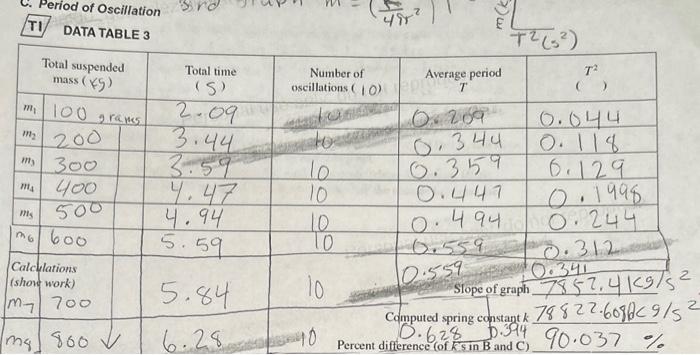 C. Period of Oscillation
m = (k/4π²)
T² (s²)
TI DATA TABLE 3
Total suspended mass (kg) Total time (s) Number of oscillations (10) Average period T T² ( )
m₁ 100 grams 2.09 10 0.209 0.044
m₂ 200 3.44 10 0.344 0.118
m₃ 300 3.59 10 0.359 0.129
m₄ 400 4.47 10 0.447 0.1998
m₅ 500 4.94 10 0.494 0.244
m6 600 5.59 10 0.559 0.312
Calculations (show work)
m7 700 5.84 10 0.559 0.341
Slope of graph 7852.41 kg/s²
Computed spring constant k
m8 800 6.28 10 0.628 0.394
Percent difference (of k's in B and C) 90.037 %